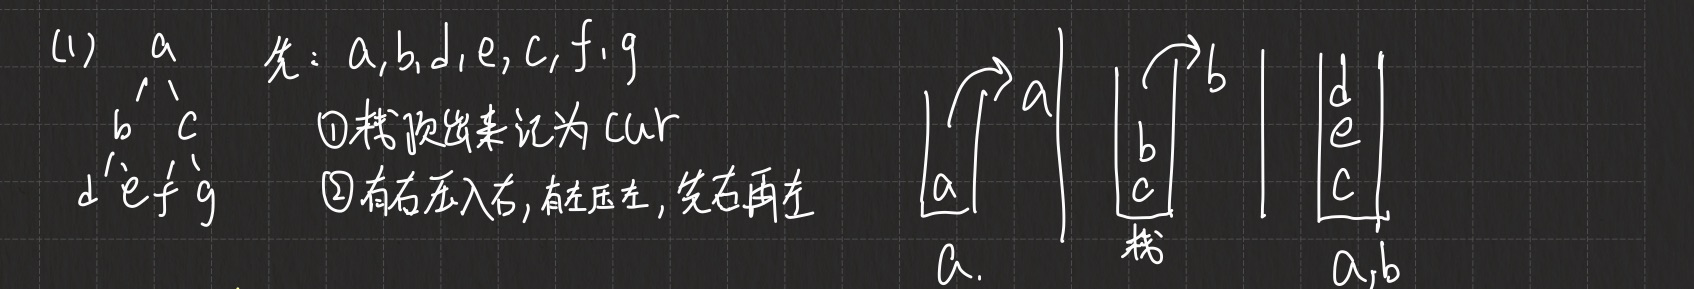 (1) a
b c
d e f g
先: a, b, d, e, c, f, g
①栈顶出来记为 cur
②有右压入右, 有左压左, 先右再左
a
a
a.
b
b
c
栈
d
e
c
a, b